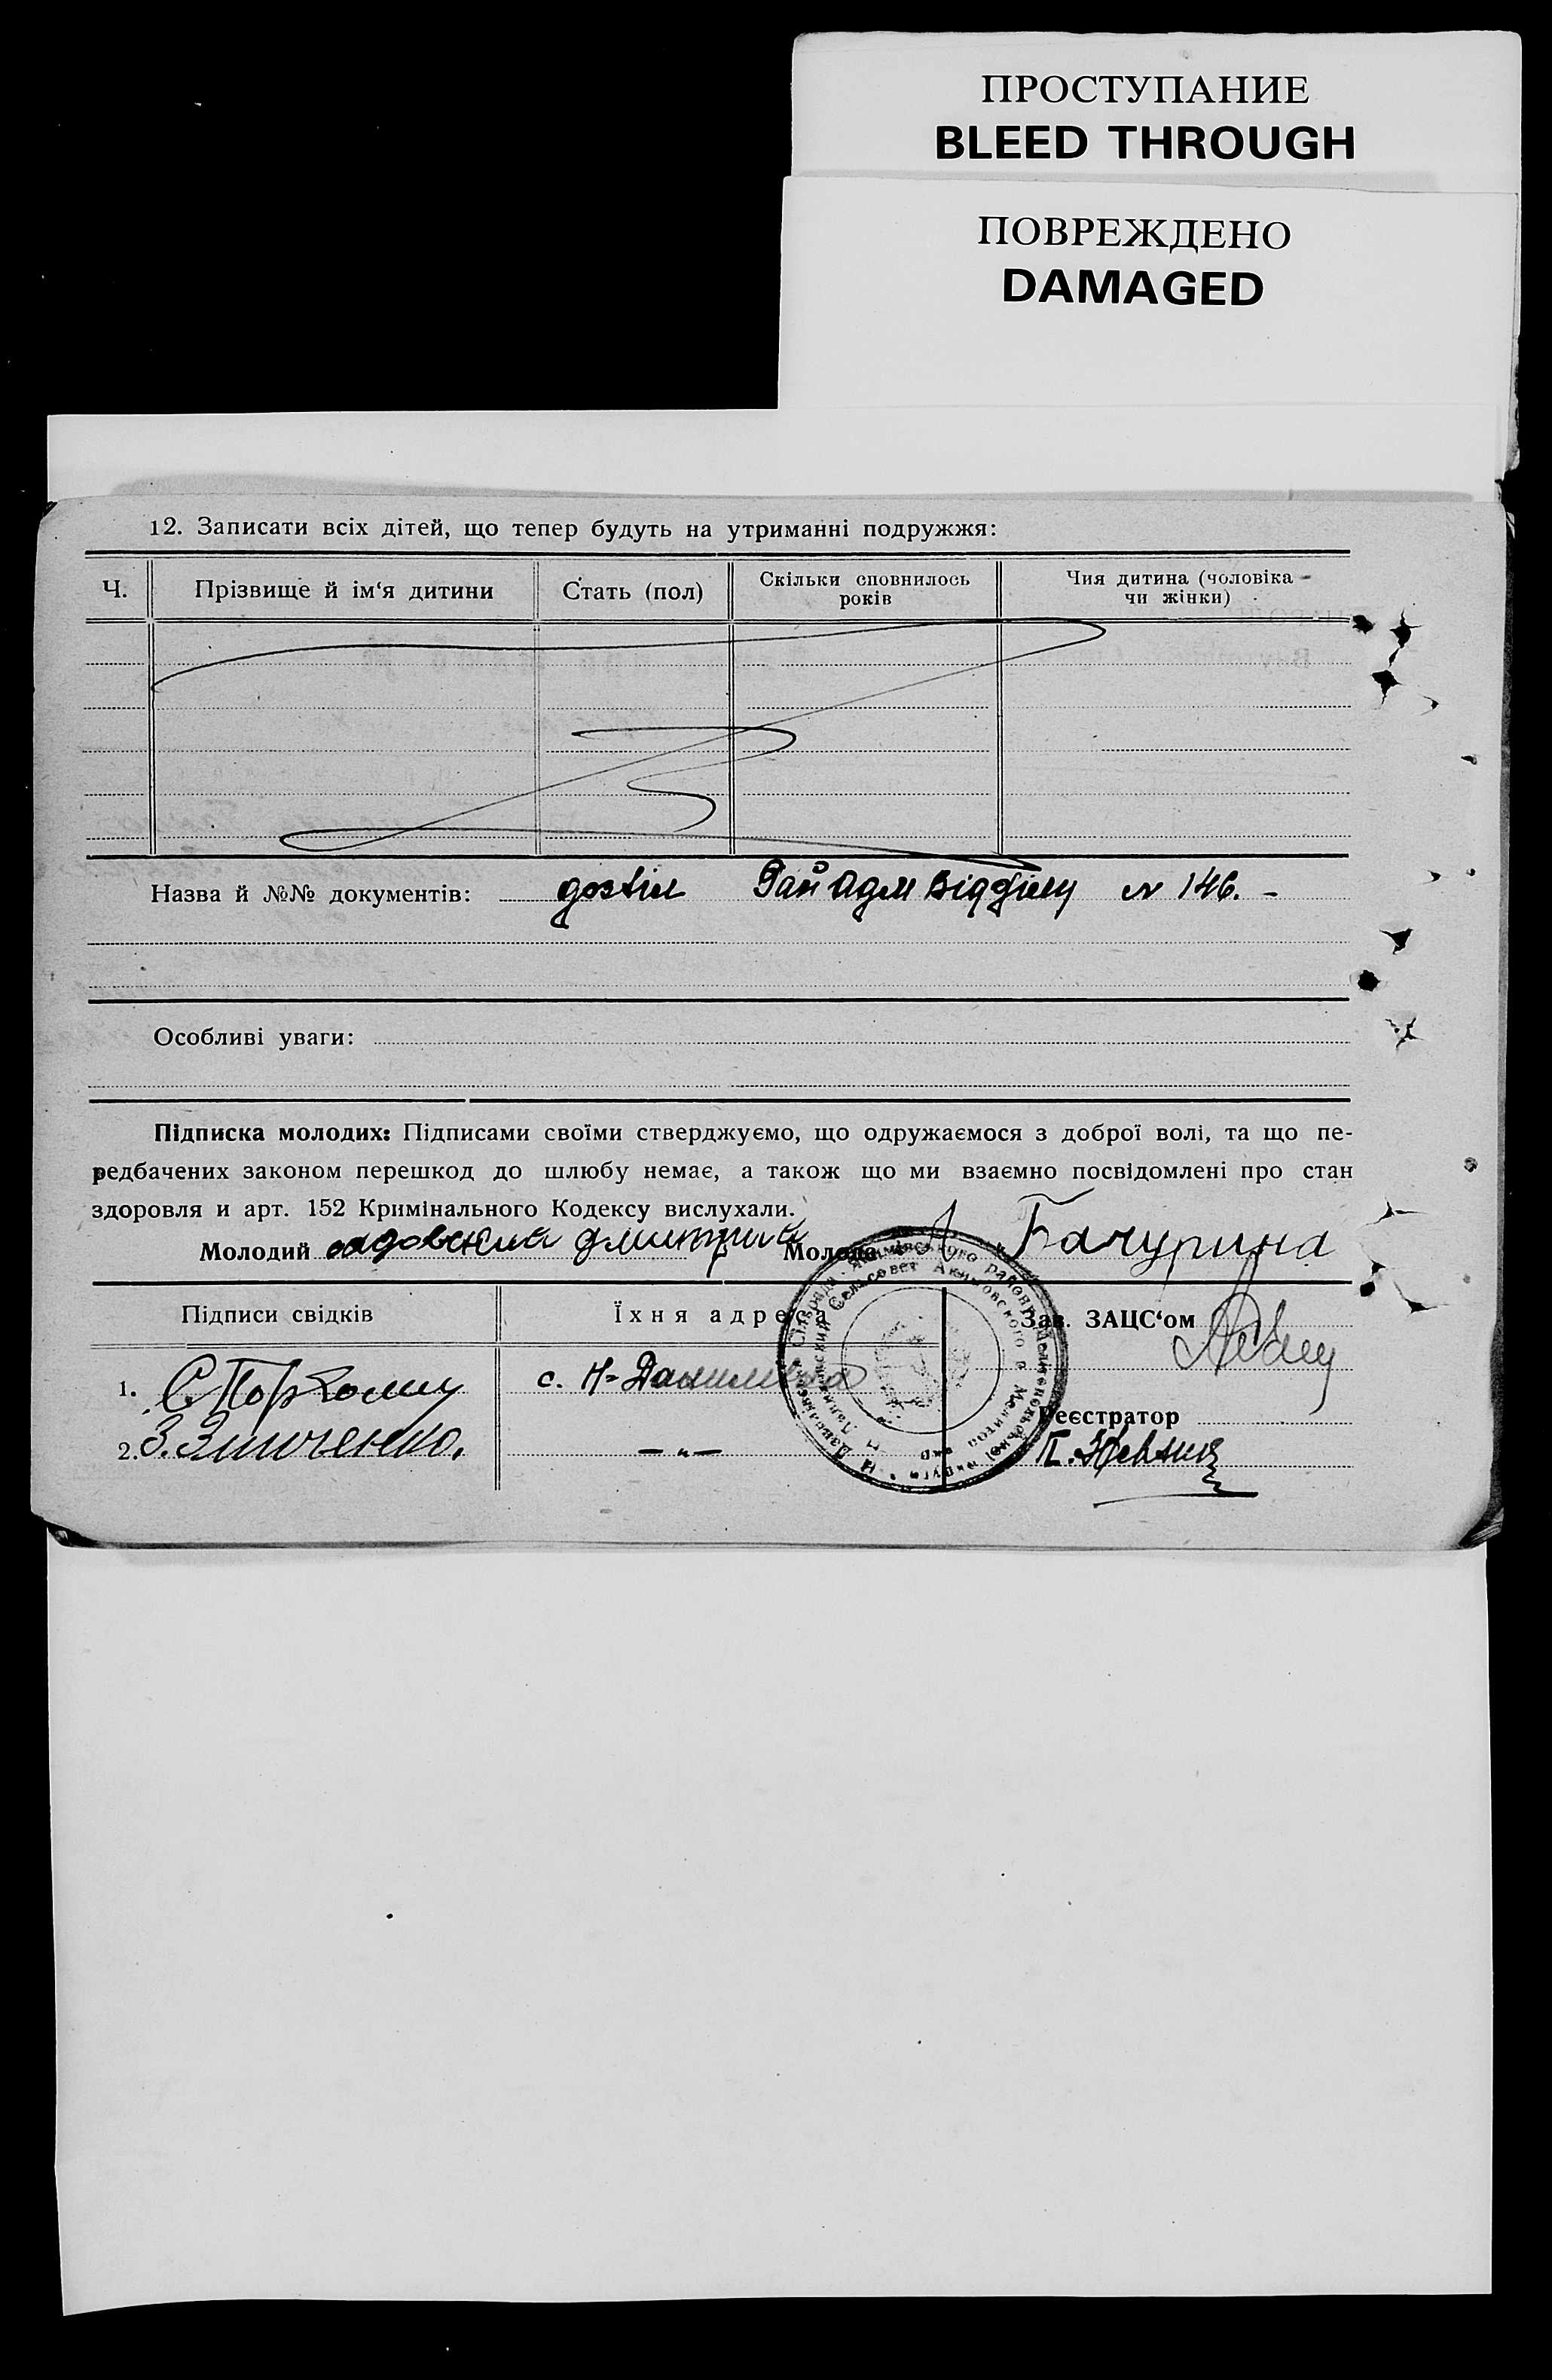 ПРОСТУПАНИЕ
BLEED THROUGH
ПОВРЕЖДЕНО
DAMAGED
12. Записати всіх дітей, що тепер будуть на утриманні подружжя:
Ч. Прізвище й ім‘я дитини Стать (пол) Скільки сповнилось років Чия дитина (чоловіка чи жінки)
Назва й №№ документів: дозвіл Рай Адм Відділу № 146. -
Особливі уваги:
Підписка молодих: Підписами своїми стверджуємо, що одружаємося з доброї волі, та що пе-
редбачених законом перешкод до шлюбу немає, а також що ми взаємно посвідомлені про стан
здоровля и арт. 152 Кримінального Кодексу вислухали.
Молодий Молода Бачурина
Підписи свідків Їхня адреса Зав. ЗАЦС‘ом
1. с. Н-Данилівка
Реєстратор
2. З. Зінченко. — „ —